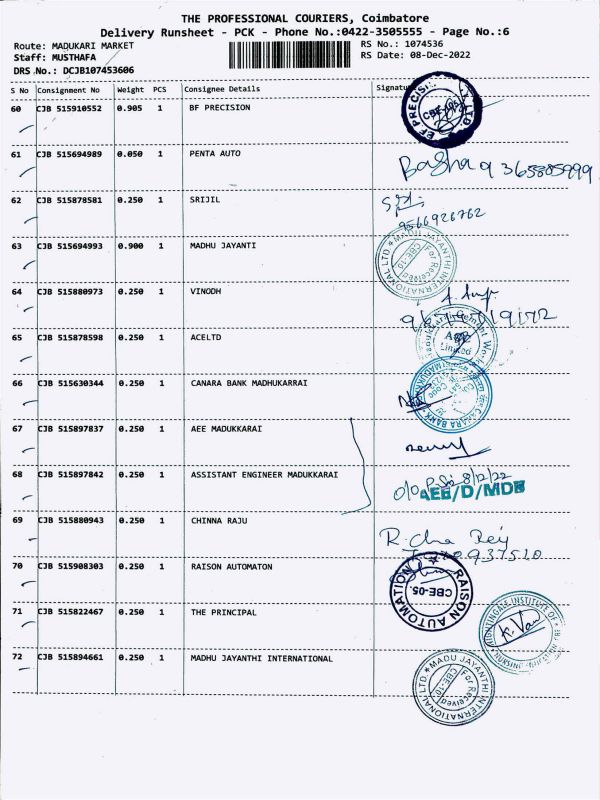 THE PROFESSIONAL COURIERS, Coimbatore
Delivery Runsheet - PCK - Phone No.:0422-3505555 - Page No.:6
Route: MADUKARI MARKET
RS No.: 1074536
Staff: MUSTHAFA
RS Date: 08-Dec-2022
DRS No.: DCJB107453606
S No Consignment No Weight PCS Consignee Details Signature
60 CJB 515910552 0.905 1 BF PRECISION
CBE-105
61 CJB 515694989 0.050 1 PENTA AUTO
Basha 9365885999
62 CJB 515878581 0.250 1 SRIJIL
9566926762
63 CJB 515694993 0.900 1 MADHU JAYANTI
MADU JAYANTHI INTERNATIONAL LTD. ★
For Received
CBE-10
64 CJB 515880973 0.250 1 VINODH
65 CJB 515878598 0.250 1 ACELTD
Limited
66 CJB 515630344 0.250 1 CANARA BANK MADHUKARRAI
CANARA BANK
67 CJB 515897837 0.250 1 AEE MADUKKARAI
68 CJB 515897842 0.250 1 ASSISTANT ENGINEER MADUKKARAI
8/12/22
AEE/D/MDK
69 CJB 515880943 0.250 1 CHINNA RAJU
70 CJB 515908303 0.250 1 RAISON AUTOMATON
RAISON AUTOMATION
CBE-05.
71 CJB 515822467 0.250 1 THE PRINCIPAL
NIGHTINGALE INSTITUTE OF NURSING
K. Van
72 CJB 515894661 0.250 1 MADHU JAYANTHI INTERNATIONAL
MADU JAYANTHI INTERNATIONAL LTD. ★
For Received
CBE-10